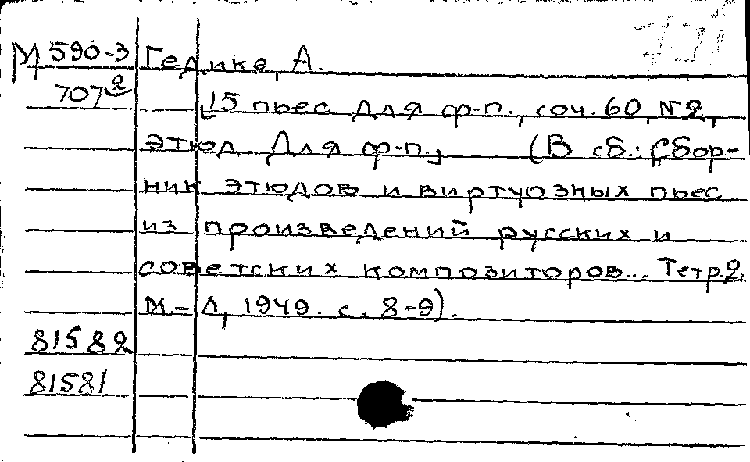 М 590-3 Гедике, А.
707² [15 пьес для ф-п., соч. 60, №2,
этюд. Для ф-п.] (В сб.: Сбор-
ник этюдов и виртуозных пьес
из произведений русских и
советских композиторов... Тетр.2.
М-Л, 1949. с. 8-9).
81582
81581